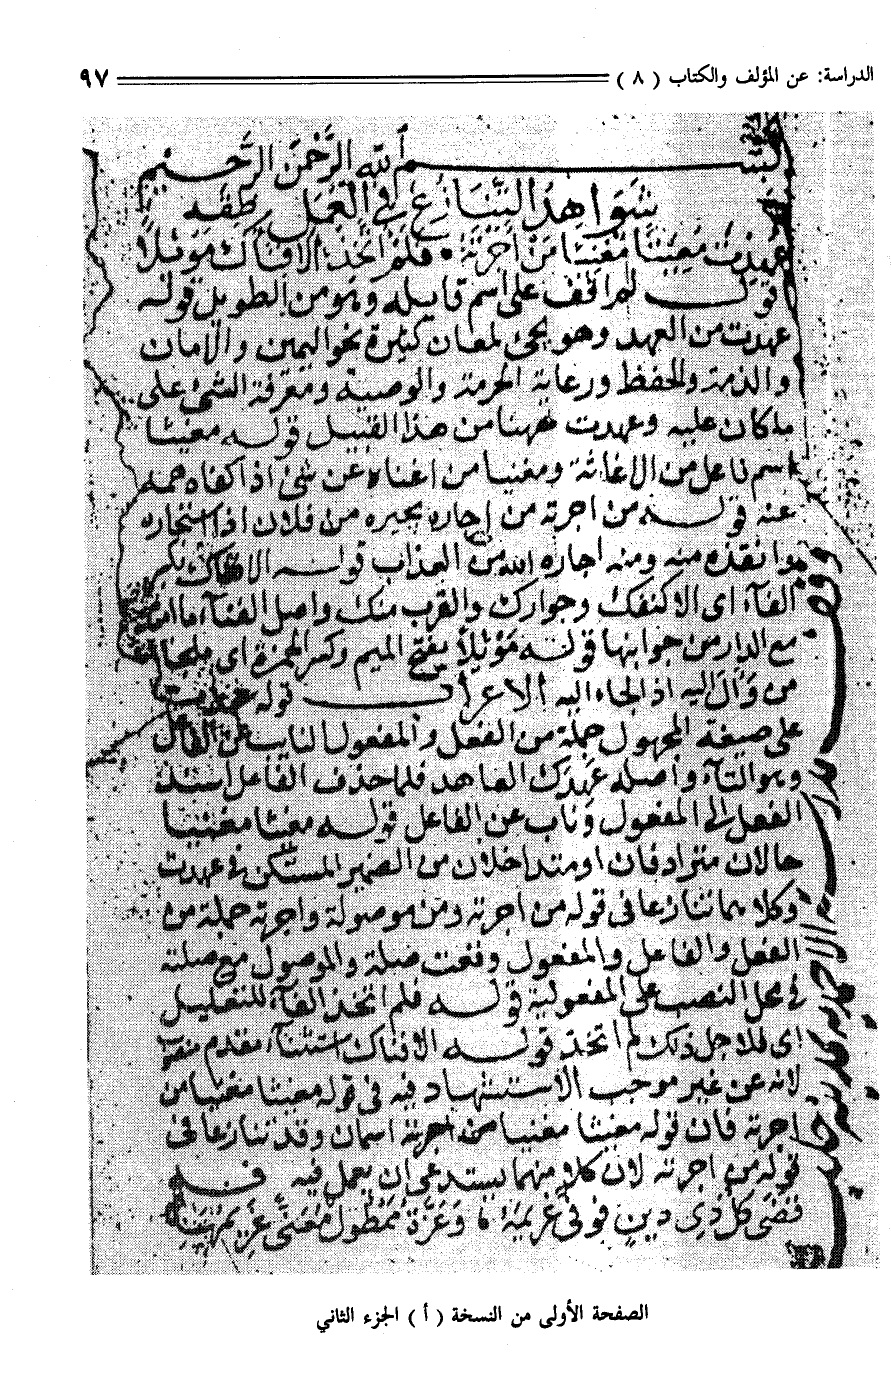 الدراسة: عن المؤلف والكتاب ( ٨ ) ٩٧
بسم الله الرحمن الرحيم
شَوَاهِدُ التَّنَازُعِ فِي الْعَمَلِ
عُهِدْتَ مُغِيثًا مُغْنِيًا مَنْ أَجَرْتَهُ فَلَمْ أَتَّخِذْ إِلَّا فِنَاءَكَ مَوْئِلًا
قوله لم اقف على اسم قايله وهو من الطويل قوله
عهدت من العهد وهو يجئ لمعان كثيرة نحو اليمين والامان
والذمة والحفظ ورعاية الحرمة والوصية ومعرفة الشئ على
ما كان عليه وعهدت ههنا من هذا القبيل قوله مغيثا
اسم فاعل من الاغاثة ومغنيا من اغناه عن شئ اذا كفاه همه
عنه قوله من اجرته من اجاره يجيره من فلان اذا استجاره
وانقذه منه ومنه اجاره الله من العذاب قوله الا فناك
الفآء اى الا كنفك وجوارك والقرب منك واصل الفنآء ما
مع الدار من جوانبها قوله مَوْئِلًا بفتح الميم وكسر الهمزة اى ملجا
من وَأَلَ اليه اذا لجاء اليه الاعراب قوله عهدت
على صيغة المجهول جملة من الفعل والمفعول الناب عن الفاعل
وهو التآء واصله عَهِدَكَ العاهد فلما حذف الفاعل اسند
الفعل الى المفعول وناب عن الفاعل قوله مغيثا مغنيا
حالان مترادفان او متداخلان من الضمير المستكن في عهدت
وكلاهما تنازعا فى قوله من اجرته ومن موصولة واجرته جملة من
الفعل والفاعل والمفعول وقعت صلة والموصول مع صلته
في محل النصب على المفعولية قوله فلم اتخذ الفآء للتعليل
اى فلاجل ذلك لم اتخذ قوله الا فناك استثناء مقدم
لانه عن غير موجب الاستشهاد فيه فى قوله مغيثا مغنيا من
اجرته فان قوله مغيثا مغنيا اسمان وقد تنازعا فى
قوله من اجرته لان كلا منهما يستدعى ان يعمل فيه
قَضَى كلُّ ذِى دَيْنٍ فَوَفَّى غَرِيمَهُ وَعَزَّةُ مَمْطُولٌ مُعَنًّى غَرِيمُهَا
الصفحة الأولى من النسخة ( أ ) الجزء الثاني